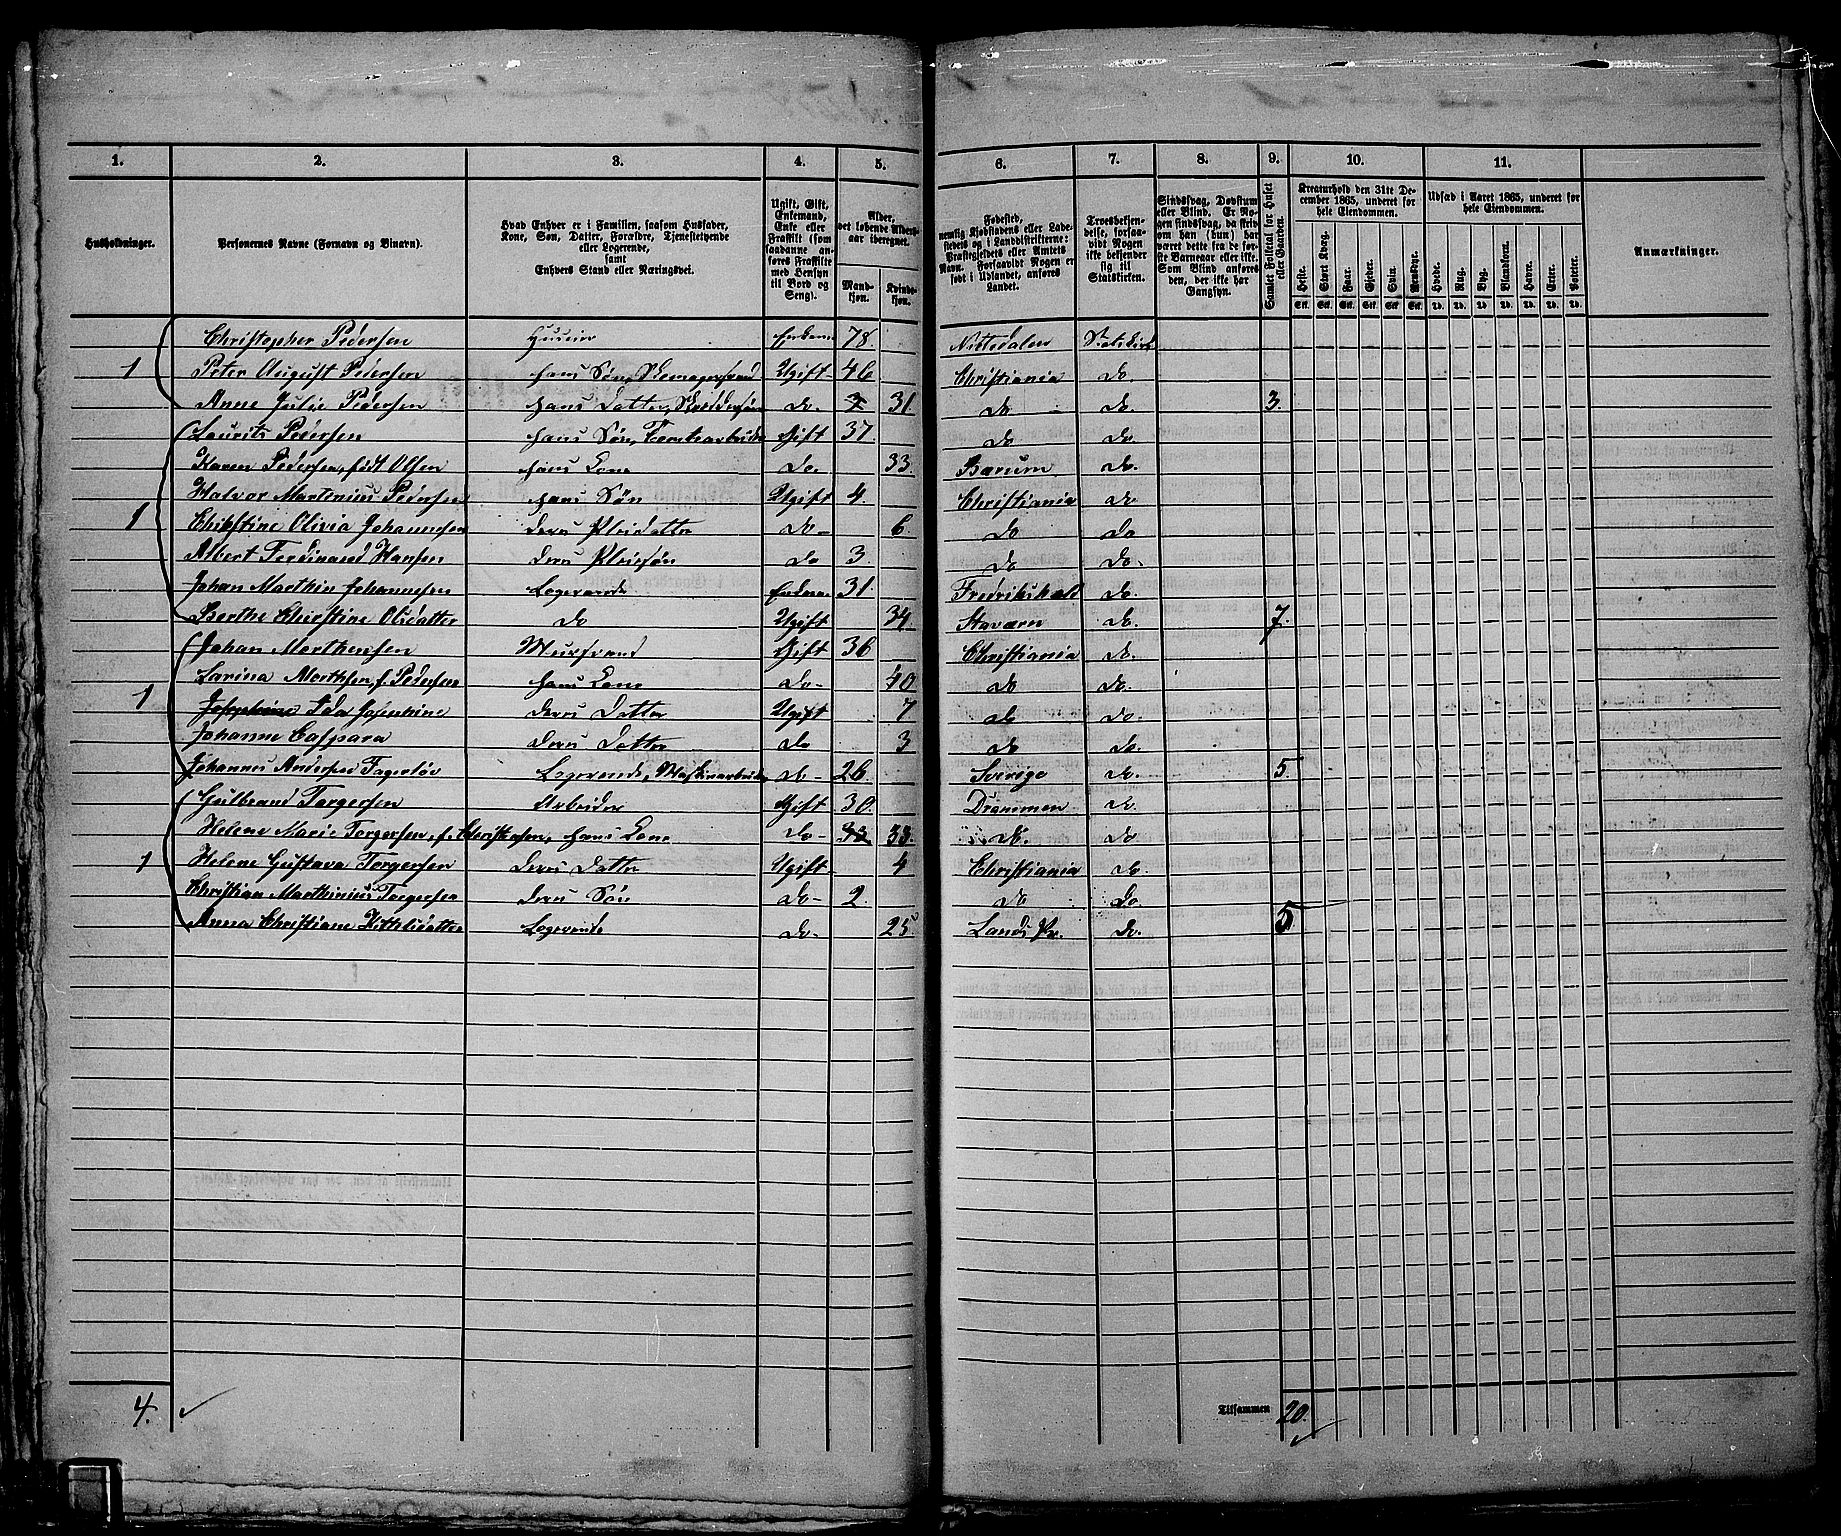 1. 2. 3. 4. 5. 6. 7. 8. 9. 10. 11.
Husholdninger.
Personernes Navne (Fornavn og Binavn).
Hvad Enhver er i Familien, saasom Husfader, Kone, Søn, Datter, Forældre, Tjenestetyende eller Logerende, samt Enhvers Stand eller Næringsvei.
Ugift, Gift, Enkemand, Enke eller Fraskilt (som saadanne anføres Fraskilte med Hensyn til Bord og Seng).
Alder, det løbende Alders-aar iberegnet.
Mand-kjøn. Kvinde-kjøn.
Fødested, nemlig Kjøbstadens eller Ladestedets og i Landdistrikterne: Præstegjeldets eller Amtets Navn. Forsaavidt Nogen er født i Udlandet, anføres Landet.
Troesbekjendelse, forsaavidt Nogen ikke bekjender sig til Statskirken.
Sindssvag, Døvstum eller Blind. Er Nogen sindssvag, da skrives om han (hun) har været dette fra de første Barneaar eller ikke. Som Blind anføres den, der ikke har Gangsyn.
Samlet Folketal for Huset eller Gaarden.
Kreaturhold den 31te December 1865, underet for hele Eiendommen.
Heste. Stort Kvæg. Faar. Gjeder. Svin. Rensdyr.
Udsæd i Aaret 1865, underet for hele Eiendommen.
Hvede. Rug. Byg. Blandkorn. Havre. Erter. Poteter.
Anmærkninger.
Christopher Pedersen Huseier Enkem 78. Nittedalen Statskirk
1 Peter August Pedersen hans Søn, Skomagersvend Ugift 46 Christiania do.
Anne Julie Pedersen hans Datter, do. 31. do do. 3.
Laurits Pedersen hans Søn, Gift 37. do do
Karen Pedersen, født Olsen hans Kone do. 33. Bærum do.
Halvor Martinius Pedersen hans Søn Ugift 4. Christiania do
1 Christine Olivia Johannesen deres Pleiedatter do 6. do do
Albert Ferdinand Hansen deres Pleiesøn do 3. do do.
Johan Marthin Johannesen Logerende Enkem 31. Fredrikshald do.
Berthe Christine Olsdatter do Ugift 34. Stavern do. 7.
Johan Marthensen Murswend Gift 36 Christiania do.
Larina Marthsen f. Pedersen hans Kone do 40 do do.
1 Josephine Ida Josephine deres Datter Ugift 7 do do.
Johanne Caspara deres Datter do 3 do do.
Johannes Andersen Logerende, Maskinarbeider do 26. Sverige do. 5.
Gulbrand Torgersen Arbeider Gift 30. Drammen do.
Helene Marie Torgersen, f. Christensen, hans Kone do 33. do. do
1 Helene Gustava Torgersen deres Datter Ugift 4 Christiania do.
Christian Marthinius Torgersen deres Søn do 2. do do
Anna Christiane Kittilsdatter Logerende do 25. Lands Pr. do. 5
4. Tilsammen 20.